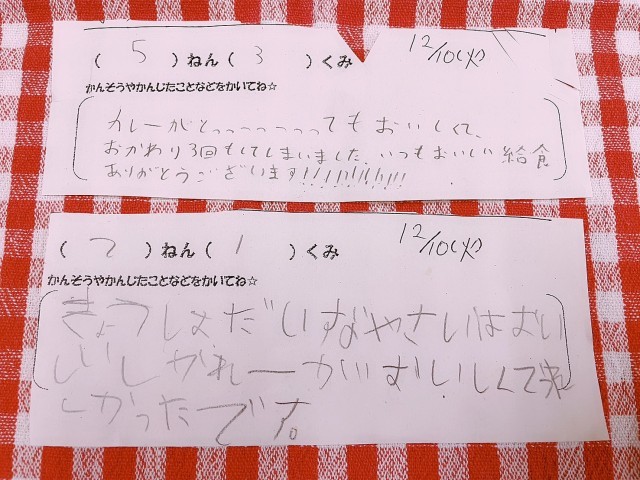 (5)ねん(3)くみ
12/10(火)
かんそうやかんじたことなどをかいてね☆
カレーがとっっっっっっってもおいしくて、
おかわり3回もしてしまいました。いつもおいしい給食
ありがとうございます!!!!!!!!!!!!
(2)ねん(1)くみ
12/10(火)
かんそうやかんじたことなどをかいてね☆
きょうしょだいずやさいはおい
しいしかれーがおいしくて楽
しかったです。